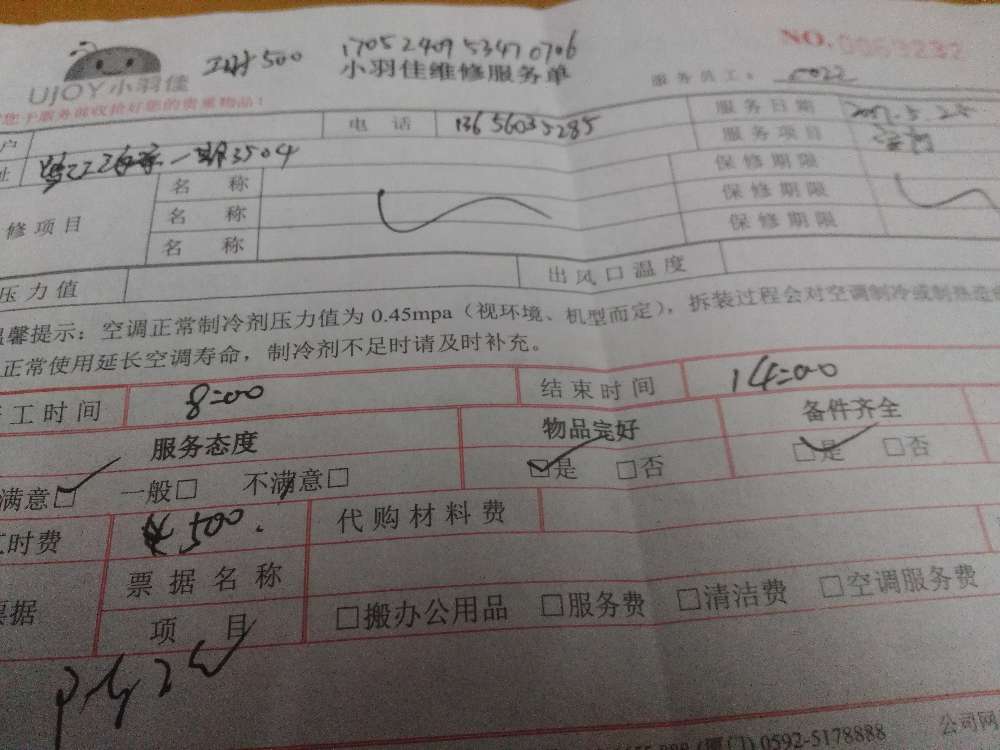 工时500 1705240953470706 NO.0053232
UJOY小羽佳 小羽佳维修服务单 服务员工: 5022
您于服务前收拾好您的贵重物品!
户 电 话 13656035285 服务日期
址 一期3504 服务项目
修项目 名 称 保修期限
名 称 保修期限
名 称 保修期限
压力值 出风口温度
温馨提示:空调正常制冷剂压力值为 0.45mpa(视环境、机型而定),拆装过程会对空调制冷或制热造
正常使用延长空调寿命,制冷剂不足时请及时补充。
工时间 8:00 结束时间 14:00
服务态度 物品完好 备件齐全
满意□ 一般□ 不满意□ □是 □否 □是 □否
工时费 ¥500. 代购材料费
票据 票据名称
项 目 □搬办公用品 □服务费 □清洁费 □空调服务费
(厦门) 0592-5178888 公司网